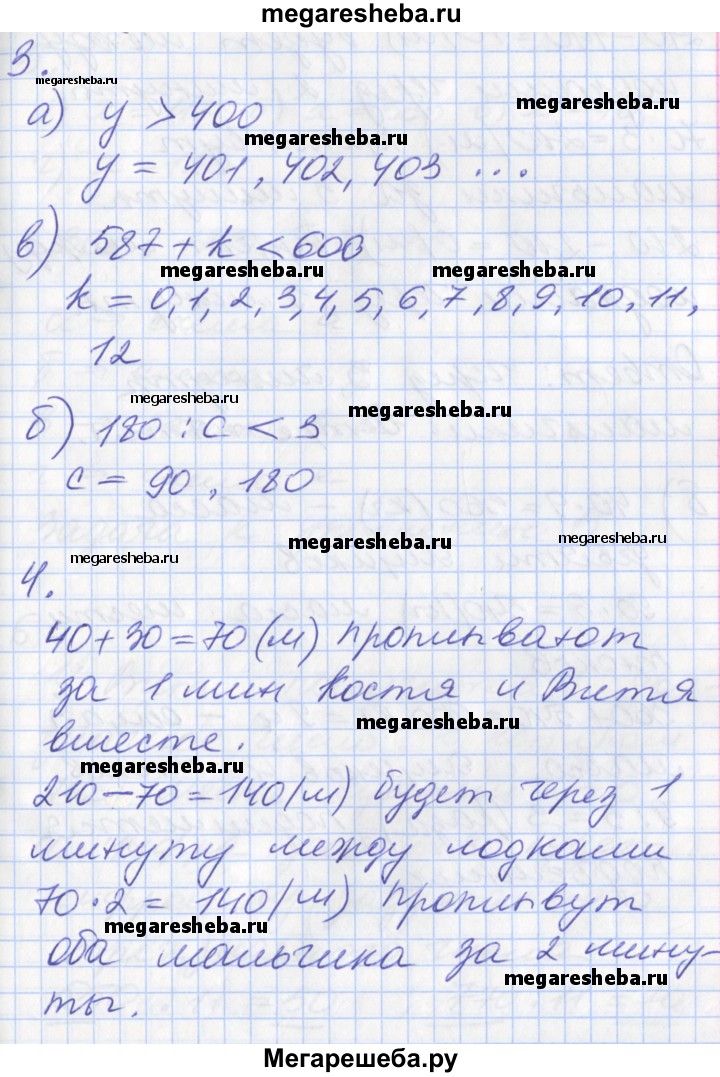 megaresheba.ru
3.
megaresheba.ru
megaresheba.ru
а) y > 400
megaresheba.ru
y = 401, 402, 403 ...
в) 587 + k < 600
megaresheba.ru megaresheba.ru
k = 0, 1, 2, 3, 4, 5, 6, 7, 8, 9, 10, 11,
12
megaresheba.ru
megaresheba.ru
б) 180 : c < 3
c = 90, 180
megaresheba.ru megaresheba.ru
megaresheba.ru
4.
40 + 30 = 70 (м) проплывают
за 1 мин Костя и Витя
megaresheba.ru
вместе.
megaresheba.ru
210 – 70 = 140 (м) будет через 1
минуту между лодками
70 · 2 = 140 (м) проплывут
megaresheba.ru
оба мальчика за 2 мину-
megaresheba.ru
ты.
Мегарешеба.ру